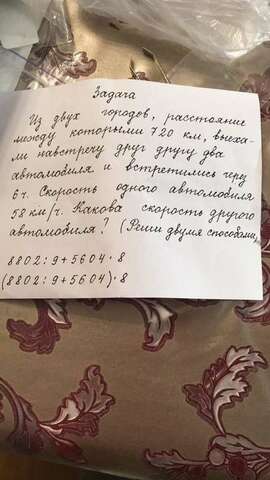 Задача
Из двух городов, расстояние
между которыми 720 км, выеха-
ли навстречу друг другу два
автомобиля и встретились через
6 ч. Скорость одного автомобиля
58 км/ч. Какова скорость другого
автомобиля? (Реши двумя способами)
8802:9+5604·8
(8802:9+5604)·8